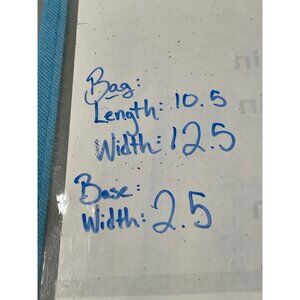 Bag:
Length: 10.5
Width: 12.5
Base:
Width: 2.5